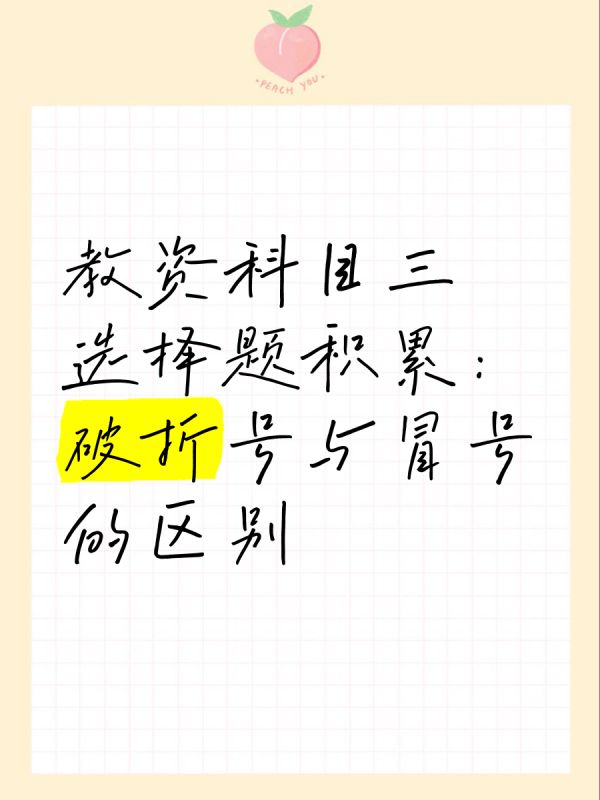 •PEACH YOU•
教资科目三
选择题积累：
破折号与冒号
的区别